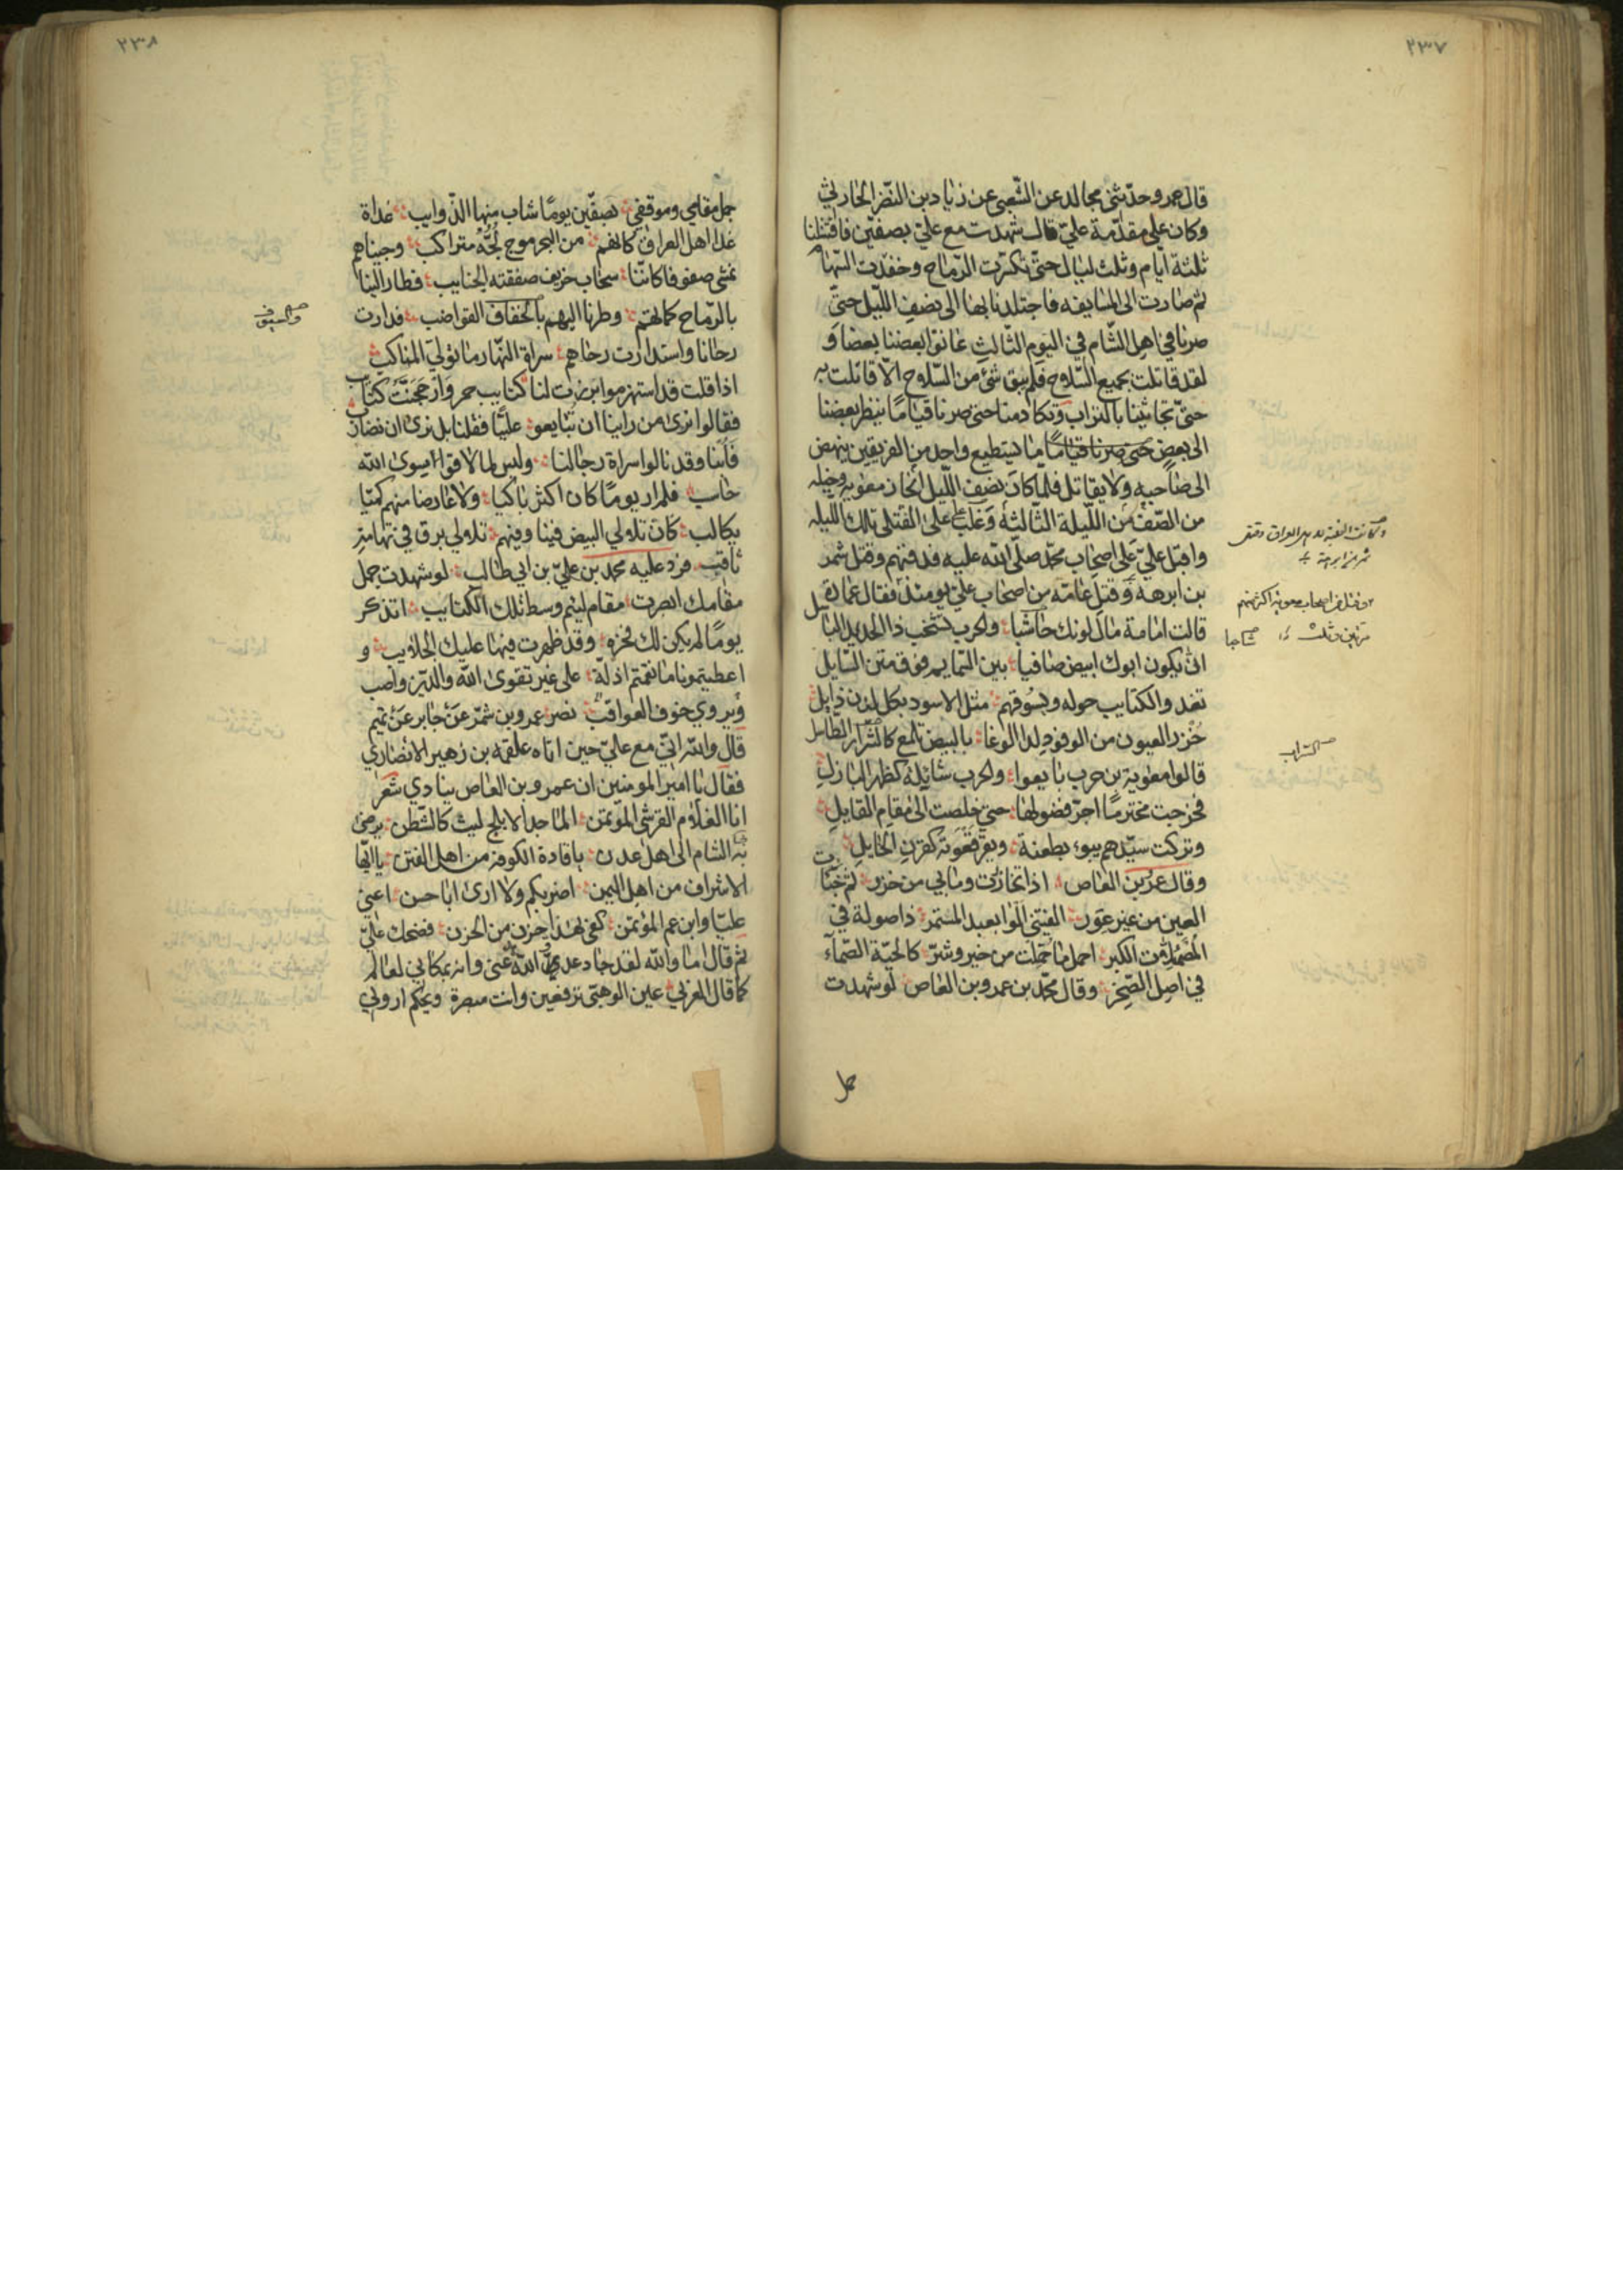 ٢٣٧
قال عمرو حدّثنى مجالد عن الشّعبى عن زياد بن النّضر الحارثي
وكان على مقدّمة عليّ قال شهدت مع عليّ بصفّين فاقتتلنا
ثلثة ايّام وثلث ليال حتّى تكسّرت الرّماح ونفدت السّهام
ثم صارت الى المسايفه فاجتلدنا بها الى نصف اللّيل حتّى
صرنا في اهل الشّام في اليوم الثّالث عانق بعضنا بعضا و
لقد قاتلت بجميع السّلاح فلم يبق شئ من السّلاح الّا قاتلت به
حتّى تحاثينا بالتراب وتكادمنا حتى صرنا قيامًا ينظر بعضنا
الى بعض حتى صرنا قيامًا ما يستطيع واحد من الفريقين ينهض
الى صاحبه ولا يقاتل فلما كان نصف اللّيل انحاز معوية وخيله
من الصّفّ من اللّيلة الثّالثه وغلب على على القتلى تلك اللّيله
واقبل عليّ على اصحاب محمّد صلّى اللّه عليه فدفنهم وقتل شمر
بن ابرهه وقتل عامّه من اصحاب عليّ يومئذ فقال عمارة
قالت امامة مال لونك حاشبا والحرب تشحب ذا الحديد الباسل
انّى يكون ابوك ابيض صافيا بين السّمايم فوق متن السّايل
تغد والكتايب حوله ويسوقهم مثل الاسود بكل لدن ذابل
خزر العيون من الوفود لدا الوغا بالبيض تلمع كالشّرار الطاسل
قالوا معوية بن حرب بايعوا والحرب شائلة كظهر البازل
فخرجت مخترمًا اجرّ فضولها حتى خلصت الى مقام القايل
وقال عمرو بن العاص اذا تخازرت وما بي من خزر ثم خبّات
العين من غير عور الفيتنى الوا بعيد المستمر ذا صولة في
المصمئلات الكبر احمل ما حمّلت من خير وشرّ كالحيّة الصّمّاء
في اصل الصّخر وقال محمّد بن عمرو بن العاص لو شهدت
جمل
٢٣٨
جمل مقامي وموقفي بصفّين يومًا شاب منها الذّوايب غداة
غدا اهل العراق كانهم من البحر موج لُجّه متراكب وجيناهم
نمشى صفوفا كانّنا سحاب خريف صفقته الجنايب فطار الينا
بالرّماح كماتهم وطرنا اليهم بالخفاف القواضب فدارت
رحانا واستدارت رحاهم سراة النّهار ما تولى المناكب
اذا قلت قد استهزموا برزت لنا كتايب حمر وارجحنّت كتايب
فقالوا نرى من راينا ان تبايعو عليّا فقلنا بل نرى ان نضارب
فأبنا وقد نالوا سراة رجالنا وليس لما لاقوا سوى اللّه
حاسب فلم ار يومًا كان اكثر باكيا ولا عارضا منهم كميّا
يكالب كان تلالي البيض فينا وفيهم تلالي برق في تهامة
ثاقب فرد عليه محمد بن عليّ بن ابي طالب لو شهدت جمل
مقامك ابصرت مقام ليئم وسط تلك الكتايب اتذكر
يومًا لم يكن لك فخره وقد ظهرت فيها عليك الجلايب و
اعطيتمونا ما نقمتم اذلّة على غير تقوى اللّه والدّين واصب
ويروي خوف العواقب نصر عمرو بن شمّر عن جابر عن تميم
قال واللّه انّي مع عليّ حين اتاه علقمه بن زهير الانصاري
فقال يا امير المومنين ان عمرو بن العاص ينادي شعرا
انا الغلام القرشى المؤتمن الماجد الابلج ليث كالشّطن يرضى
به الشام الى اهل عدن يا قادة الكوفة من اهل الفتن يا ايّها
الاشراف من اهل اليمن اضربكم ولا ارى ابا حسن اعنى
عليّا وابن عم المؤتمن كفى بهذا حزن من الحزن فضحك عليّ
ثم قال اما واللّه لقد حاد عدو اللّه عنى وانه بمكاني لعالم
كما قال العربي عين الوهى ترقعين وانت مبصرة ويحكم اروني